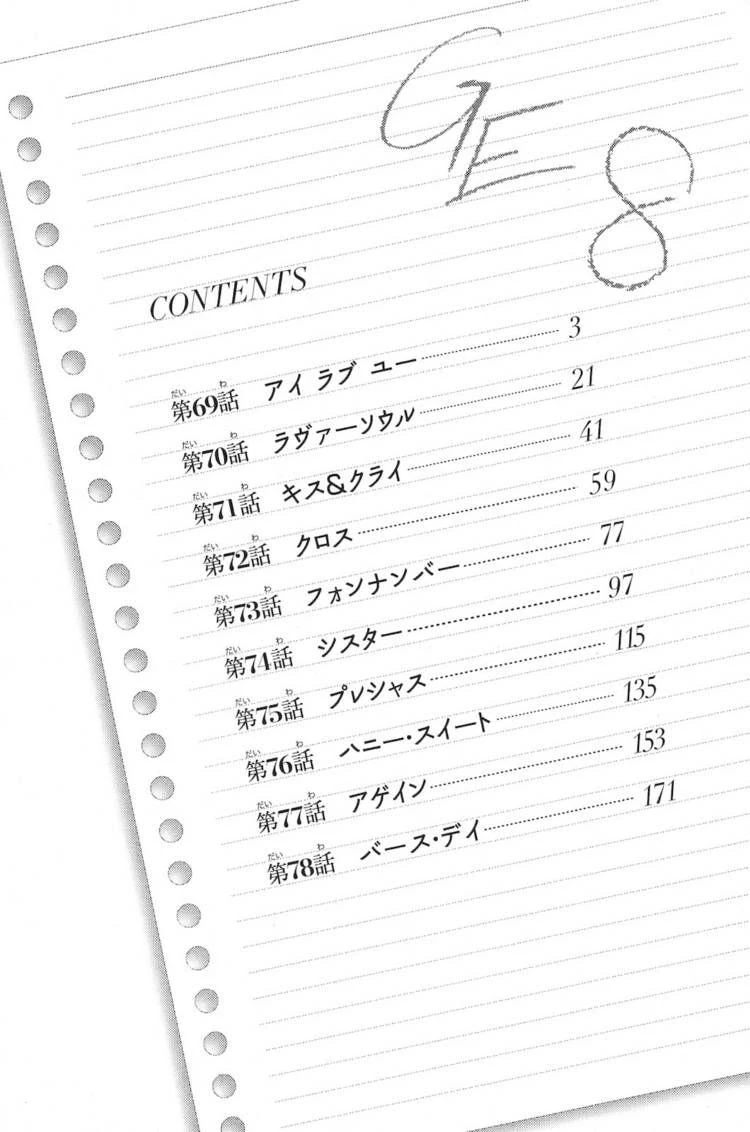 GE
8
CONTENTS
第69話 アイ ラブ ユー 3
第70話 ラヴァーソウル 21
第71話 キス&クライ 41
第72話 クロス 59
第73話 フォンナンバー 77
第74話 シスター 97
第75話 プレシャス 115
第76話 ハニー・スイート 135
第77話 アゲイン 153
第78話 バース・デイ 171